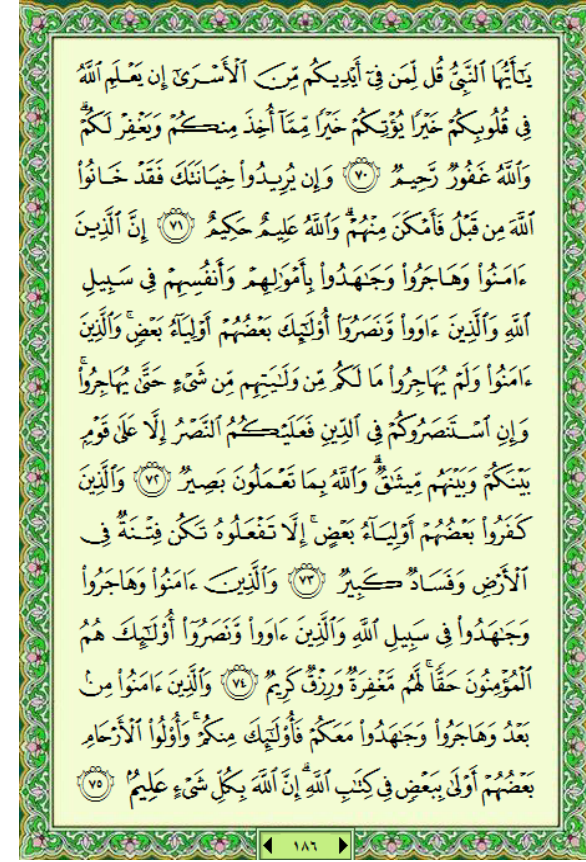 يَـٰٓأَيُّهَا ٱلنَّبِىُّ قُل لِّمَن فِىٓ أَيْدِيكُم مِّنَ ٱلْأَسْرَىٰٓ إِن يَعْلَمِ ٱللَّهُ
فِى قُلُوبِكُمْ خَيْرًا يُؤْتِكُمْ خَيْرًا مِّمَّآ أُخِذَ مِنكُمْ وَيَغْفِرْ لَكُمْ ۗ
وَٱللَّهُ غَفُورٌ رَّحِيمٌ ﴿٧٠﴾ وَإِن يُرِيدُوا۟ خِيَانَتَكَ فَقَدْ خَانُوا۟
ٱللَّهَ مِن قَبْلُ فَأَمْكَنَ مِنْهُمْ ۗ وَٱللَّهُ عَلِيمٌ حَكِيمٌ ﴿٧١﴾ إِنَّ ٱلَّذِينَ
ءَامَنُوا۟ وَهَاجَرُوا۟ وَجَـٰهَدُوا۟ بِأَمْوَٰلِهِمْ وَأَنفُسِهِمْ فِى سَبِيلِ
ٱللَّهِ وَٱلَّذِينَ ءَاوَوا۟ وَّنَصَرُوٓا۟ أُو۟لَـٰٓئِكَ بَعْضُهُمْ أَوْلِيَآءُ بَعْضٍ ۚ وَٱلَّذِينَ
ءَامَنُوا۟ وَلَمْ يُهَاجِرُوا۟ مَا لَكُم مِّن وَلَـٰيَتِهِم مِّن شَىْءٍ حَتَّىٰ يُهَاجِرُوا۟ ۚ
وَإِنِ ٱسْتَنصَرُوكُمْ فِى ٱلدِّينِ فَعَلَيْكُمُ ٱلنَّصْرُ إِلَّا عَلَىٰ قَوْمٍۭ
بَيْنَكُمْ وَبَيْنَهُم مِّيثَـٰقٌ ۗ وَٱللَّهُ بِمَا تَعْمَلُونَ بَصِيرٌ ﴿٧٢﴾ وَٱلَّذِينَ
كَفَرُوا۟ بَعْضُهُمْ أَوْلِيَآءُ بَعْضٍ ۚ إِلَّا تَفْعَلُوهُ تَكُن فِتْنَةٌ فِى
ٱلْأَرْضِ وَفَسَادٌ كَبِيرٌ ﴿٧٣﴾ وَٱلَّذِينَ ءَامَنُوا۟ وَهَاجَرُوا۟
وَجَـٰهَدُوا۟ فِى سَبِيلِ ٱللَّهِ وَٱلَّذِينَ ءَاوَوا۟ وَّنَصَرُوٓا۟ أُو۟لَـٰٓئِكَ هُمُ
ٱلْمُؤْمِنُونَ حَقًّا ۚ لَّهُم مَّغْفِرَةٌ وَرِزْقٌ كَرِيمٌ ﴿٧٤﴾ وَٱلَّذِينَ ءَامَنُوا۟ مِنۢ
بَعْدُ وَهَاجَرُوا۟ وَجَـٰهَدُوا۟ مَعَكُمْ فَأُو۟لَـٰٓئِكَ مِنكُمْ ۚ وَأُو۟لُوا۟ ٱلْأَرْحَامِ
بَعْضُهُمْ أَوْلَىٰ بِبَعْضٍ فِى كِتَـٰبِ ٱللَّهِ ۗ إِنَّ ٱللَّهَ بِكُلِّ شَىْءٍ عَلِيمٌۢ ﴿٧٥﴾
١٨٦